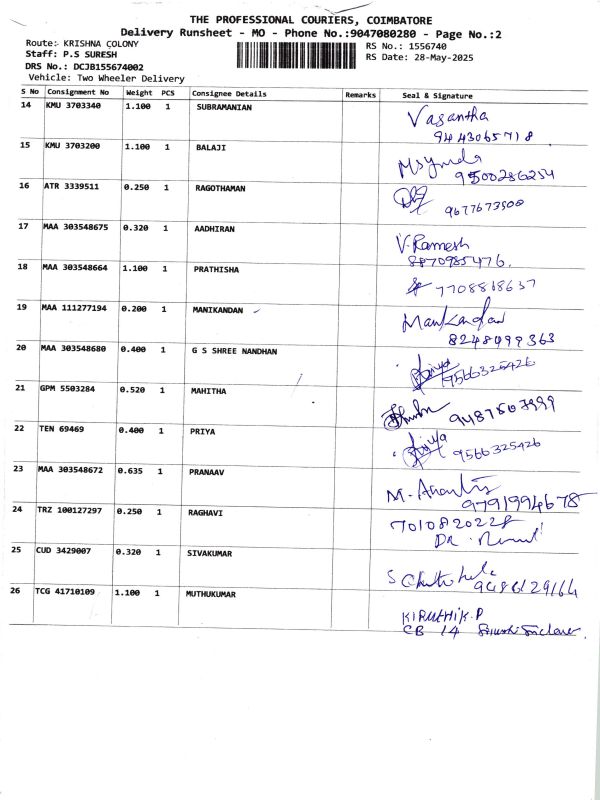 THE PROFESSIONAL COURIERS, COIMBATORE
Delivery Runsheet - MO - Phone No.:9047080280 - Page No.:2
Route: KRISHNA COLONY
RS No.: 1556740
Staff: P.S SURESH
RS Date: 28-May-2025
DRS No.: DCJB155674002
Vehicle: Two Wheeler Delivery
S No Consignment No Weight PCS Consignee Details Remarks Seal & Signature
14 KMU 3703340 1.100 1 SUBRAMANIAN Vasantha
9443065718
15 KMU 3703200 1.100 1 BALAJI
9500286254
16 ATR 3339511 0.250 1 RAGOTHAMAN
9677673508
17 MAA 303548675 0.320 1 AADHIRAN V. Ramesh
8870985476.
18 MAA 303548664 1.100 1 PRATHISHA
7708868637
19 MAA 111277194 0.200 1 MANIKANDAN Manikandan
8248499363
20 MAA 303548680 0.400 1 G S SHREE NANDHAN
9566325426
21 GPM 5503284 0.520 1 MAHITHA
9487507999
22 TEN 69469 0.400 1 PRIYA Priya
9566325426
23 MAA 303548672 0.635 1 PRANAAV
9791994678
24 TRZ 100127297 0.250 1 RAGHAVI 7010820228
DR.
25 CUD 3429007 0.320 1 SIVAKUMAR
26 TCG 41710109 1.100 1 MUTHUKUMAR KIRUTHIK.P
CB 14